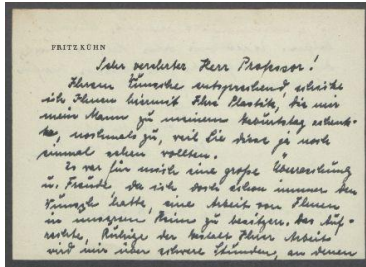 FRITZ KÜHN
Sehr verehrter Herr Professor!
Ihrem Wunsche entsprechend, schicke
ich Ihnen hiermit Ihre Plastik, die mir
mein Mann zu meinem Geburtstag schenk-
te, nochmals zu, weil Sie diese ja noch
einmal sehen wollten.
Es war für mich eine große Überraschung
u. Freude, da ich doch schon immer den
Wunsch hatte, eine Arbeit von Ihnen
in unserem Heime zu besitzen. Das Auf-
rechte, Ruhige der Ihrer Arbeit
wird mir über schwere Stunden, an denen